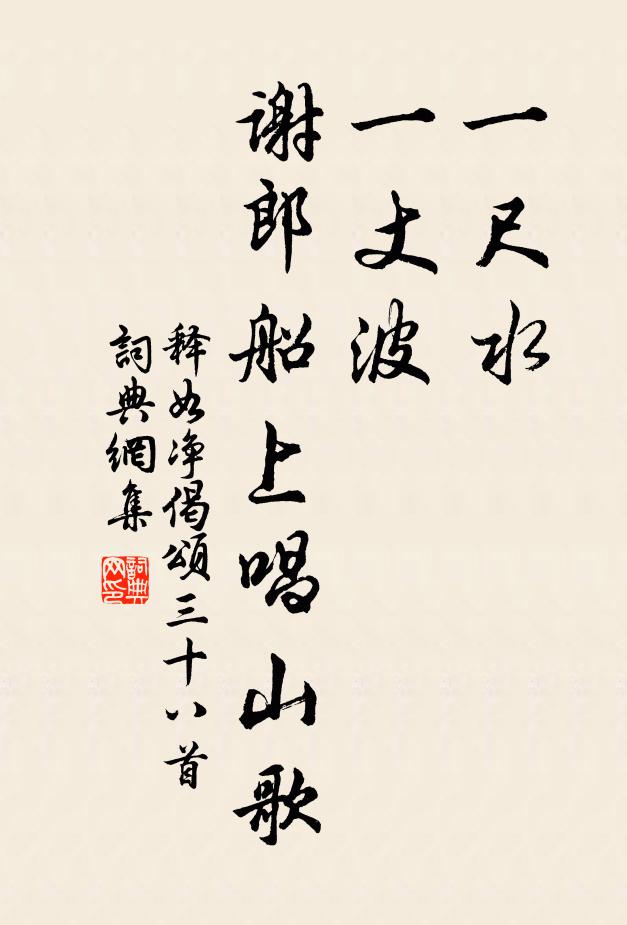 一尺水
一丈波
謝郎船上唱山歌
释如净偈頌三十八首
詞典網集
詞典网印